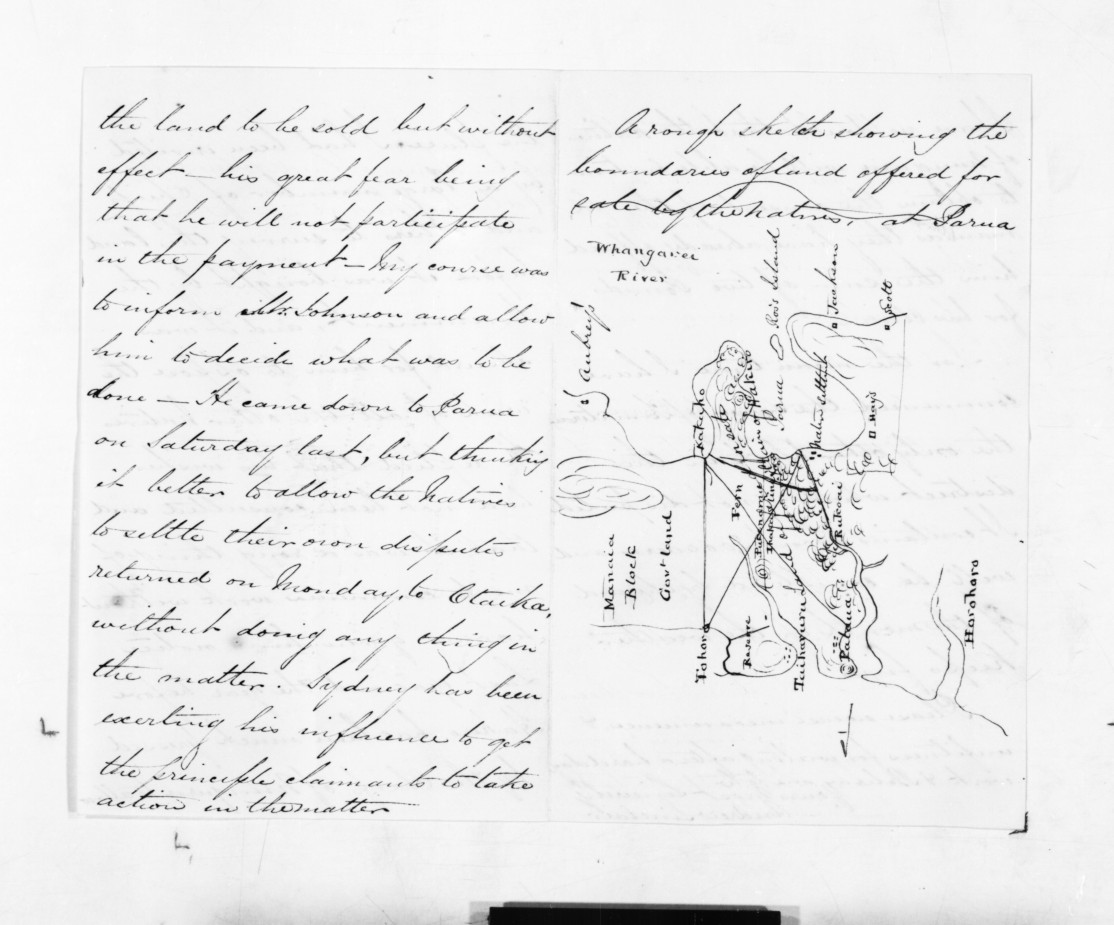 the land to be sold but without
effect — his great fear being
that he will not participate
in the payment — My course was
to inform Mr. Johnson and allow
him to decide what was to be
done — He came down to Parua
on Saturday last, but thinking
it better to allow the Natives
to settle their own disputes
returned on Monday, to Otaika,
without doing any thing in
the matter. Sydney has been
exerting his influence to get
the principle claimants to take
action in the matter
A rough sketch showing the
boundaries of land offered for
sale by the natives, at Parua
Whangarei
River
Aubrey's
Ross Island
Jackson
Scott
Parua
Native Settlement
Hay's
Fern
Manaia
Block
Govt Land
Tahoro
Reserve
Land of
Pukekai
Pataua
Horohoro